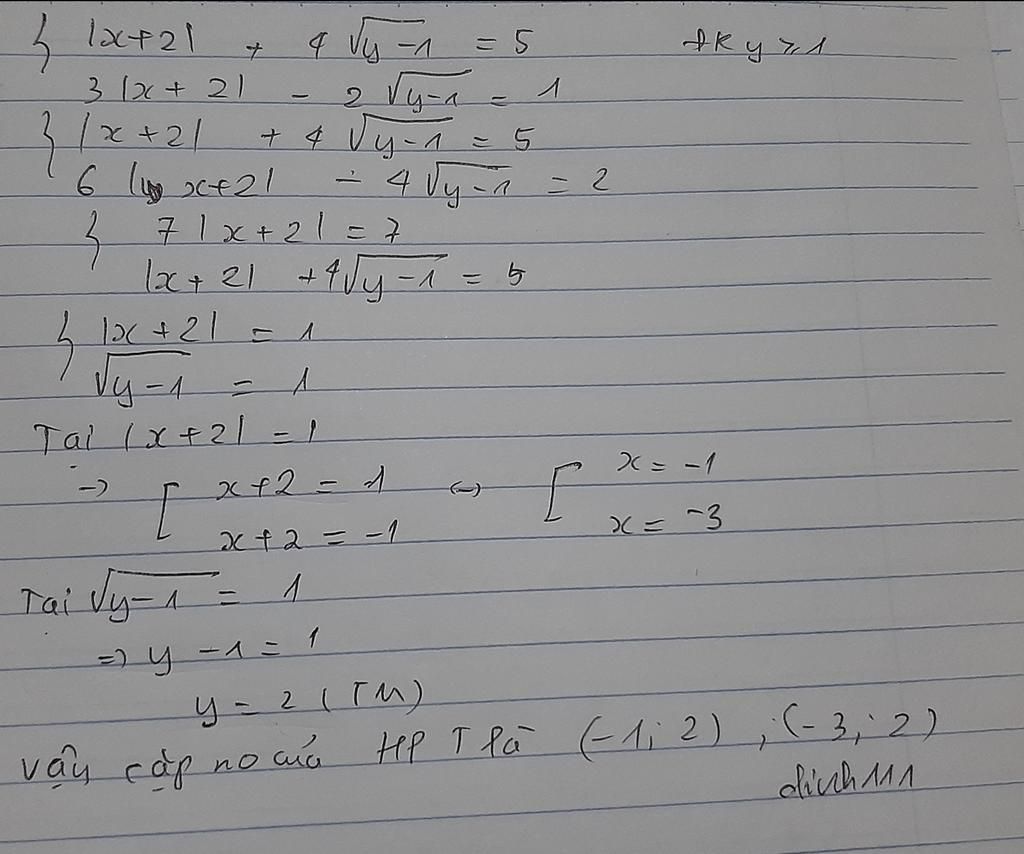 { |x+2| + 4√y-1 = 5 đk y ≥ 1
3 |x + 2| - 2 √y-1 = 1
{ |x+2| + 4 √y-1 = 5
6 | x+2| - 4√y-1 = 2
{ 7 |x+2| = 7
|x+2| +4√y-1 = 5
{ |x+2| = 1
√y-1 = 1
Tại |x+2| = 1
→ [ x+2 = 1 ↔ [ x = -1
x+2 = -1 x = -3
Tại √y-1 = 1
=> y - 1 = 1
y = 2 (TM)
Vậy cặp no của HPT là (-1; 2) ; (-3; 2)
dinh111